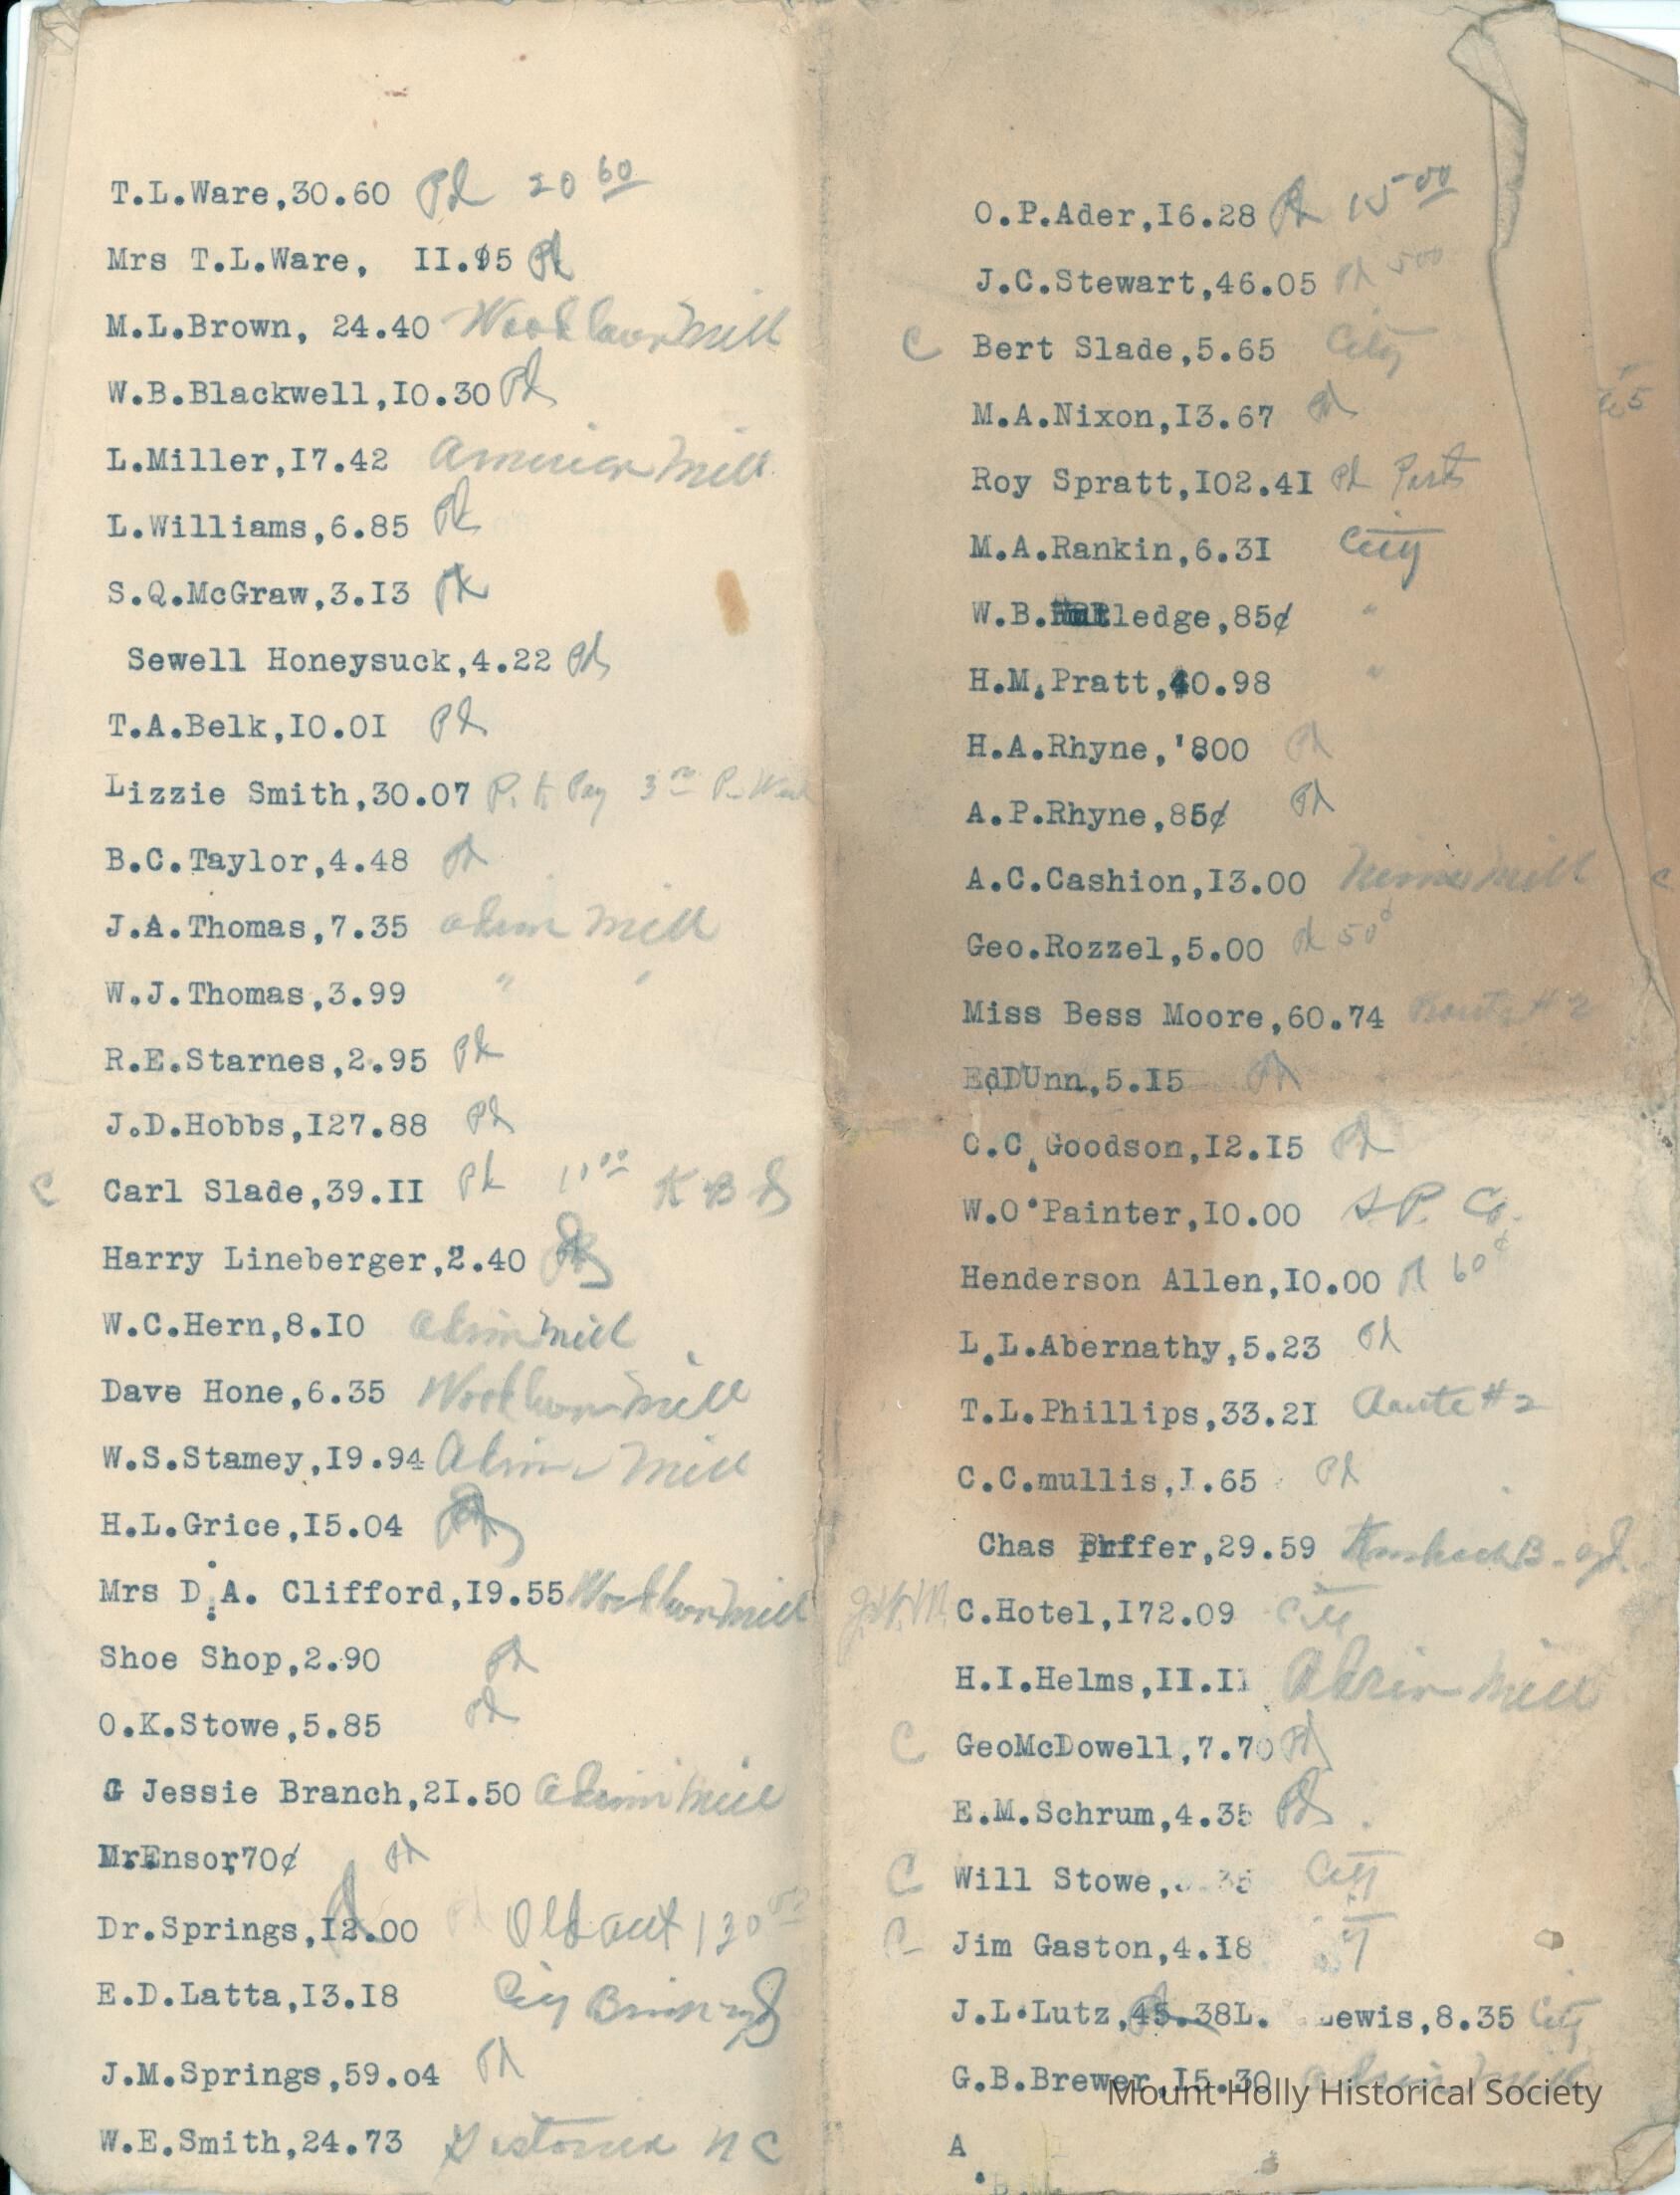 T.L.Ware,30.60 Pd 20 60
Mrs T.L.Ware, II.95 Pd
M.L.Brown, 24.40 Woodlawn Mill
W.B.Blackwell,I0.30 Pd
L.Miller,I7.42 American Mill
L.Williams,6.85 Pd
S.Q.McGraw,3.I3 Pd
Sewell Honeysuck,4.22 Pd
T.A.Belk,I0.0I Pd
Lizzie Smith,30.07 P. to Pay 3 00 P. Week
B.C.Taylor,4.48 Pd
J.A.Thomas,7.35 Mill
W.J.Thomas,3.99 " "
R.E.Starnes,2.95 Pd
J.D.Hobbs,I27.88 Pd
C Carl Slade,39.II Pd 11 00 K B S
Harry Lineberger,2.40
W.C.Hern,8.I0 Mill
Dave Hone,6.35 Woodlawn Mill
W.S.Stamey,I9.94 Mill
H.L.Grice,I5.04
Mrs D.A. Clifford,I9.55 Woodlawn Mill
Shoe Shop,2.90 Pd
O.K.Stowe,5.85 Pd
G Jessie Branch,2I.50 Mill
Mr.Ensor,70¢ Pd
Dr.Springs,I2.00 Old 130
E.D.Latta,I3.I8 City
J.M.Springs,59.o4 Pd
W.E.Smith,24.73 N C
O.P.Ader,I6.28 Pd 15 00
J.C.Stewart,46.05 Pd 5 00
C Bert Slade,5.65 City
M.A.Nixon,I3.67 Pd
Roy Spratt,I02.4I Pd Part
M.A.Rankin,6.3I City
W.B.Rutledge,85¢ "
H.M.Pratt,40.98 "
H.A.Rhyne,'800 Pd
A.P.Rhyne,85¢ Pd
A.C.Cashion,I3.00 Nims Mill
Geo.Rozzel,5.00 Pd 50¢
Miss Bess Moore,60.74 Route #2
EdDUnn,5.I5 Pd
C.C.Goodson,I2.I5 Pd
W.O.Painter,I0.00 S.P. Co.
Henderson Allen,I0.00 Pd 60¢
L.L.Abernathy,5.23 Pd
T.L.Phillips,33.2I Route #2
C.C.mullis,I.65 Pd
Chas ffer,29.59
C.Hotel,I72.09 City
H.I.Helms,II.II Mill
C GeoMcDowell,7.70 Pd
E.M.Schrum,4.35 Pd
C Will Stowe, 35 City
C Jim Gaston,4.I8
J.L.Lutz,45.38L. ewis,8.35 City
G.B.Brewer,I5.30
Mount Holly Historical Society
A